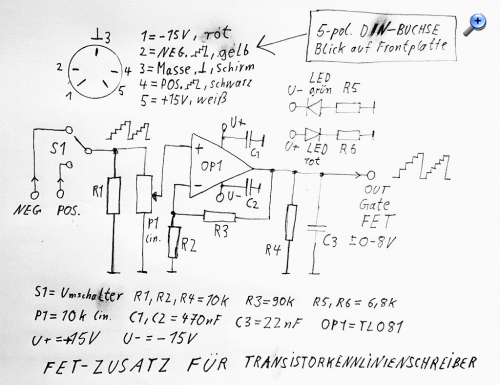 ⊥3
2
4
1
5
1=-15V, rot
2=NEG. , gelb
3=Masse, ⊥, Schirm
4=POS. , schwarz
5=+15V, weiß
5-pol. DIN-BUCHSE
Blick auf Frontplatte
LED
grün R5
U-
U+ LED R6
rot
S1
NEG POS.
R1
P1
lin.
U+
C1
+
OP1
-
U- C2
R3
R2
R4
C3
OUT
Gate
FET
±0-8V
S1= Umschalter R1,R2,R4=10k R3=90k R5,R6=6,8k
P1=10k lin. C1,C2=470nF C3=22nF OP1=TL081
U+=+15V U-=-15V
FET-ZUSATZ FÜR TRANSISTORKENNLINIENSCHREIBER